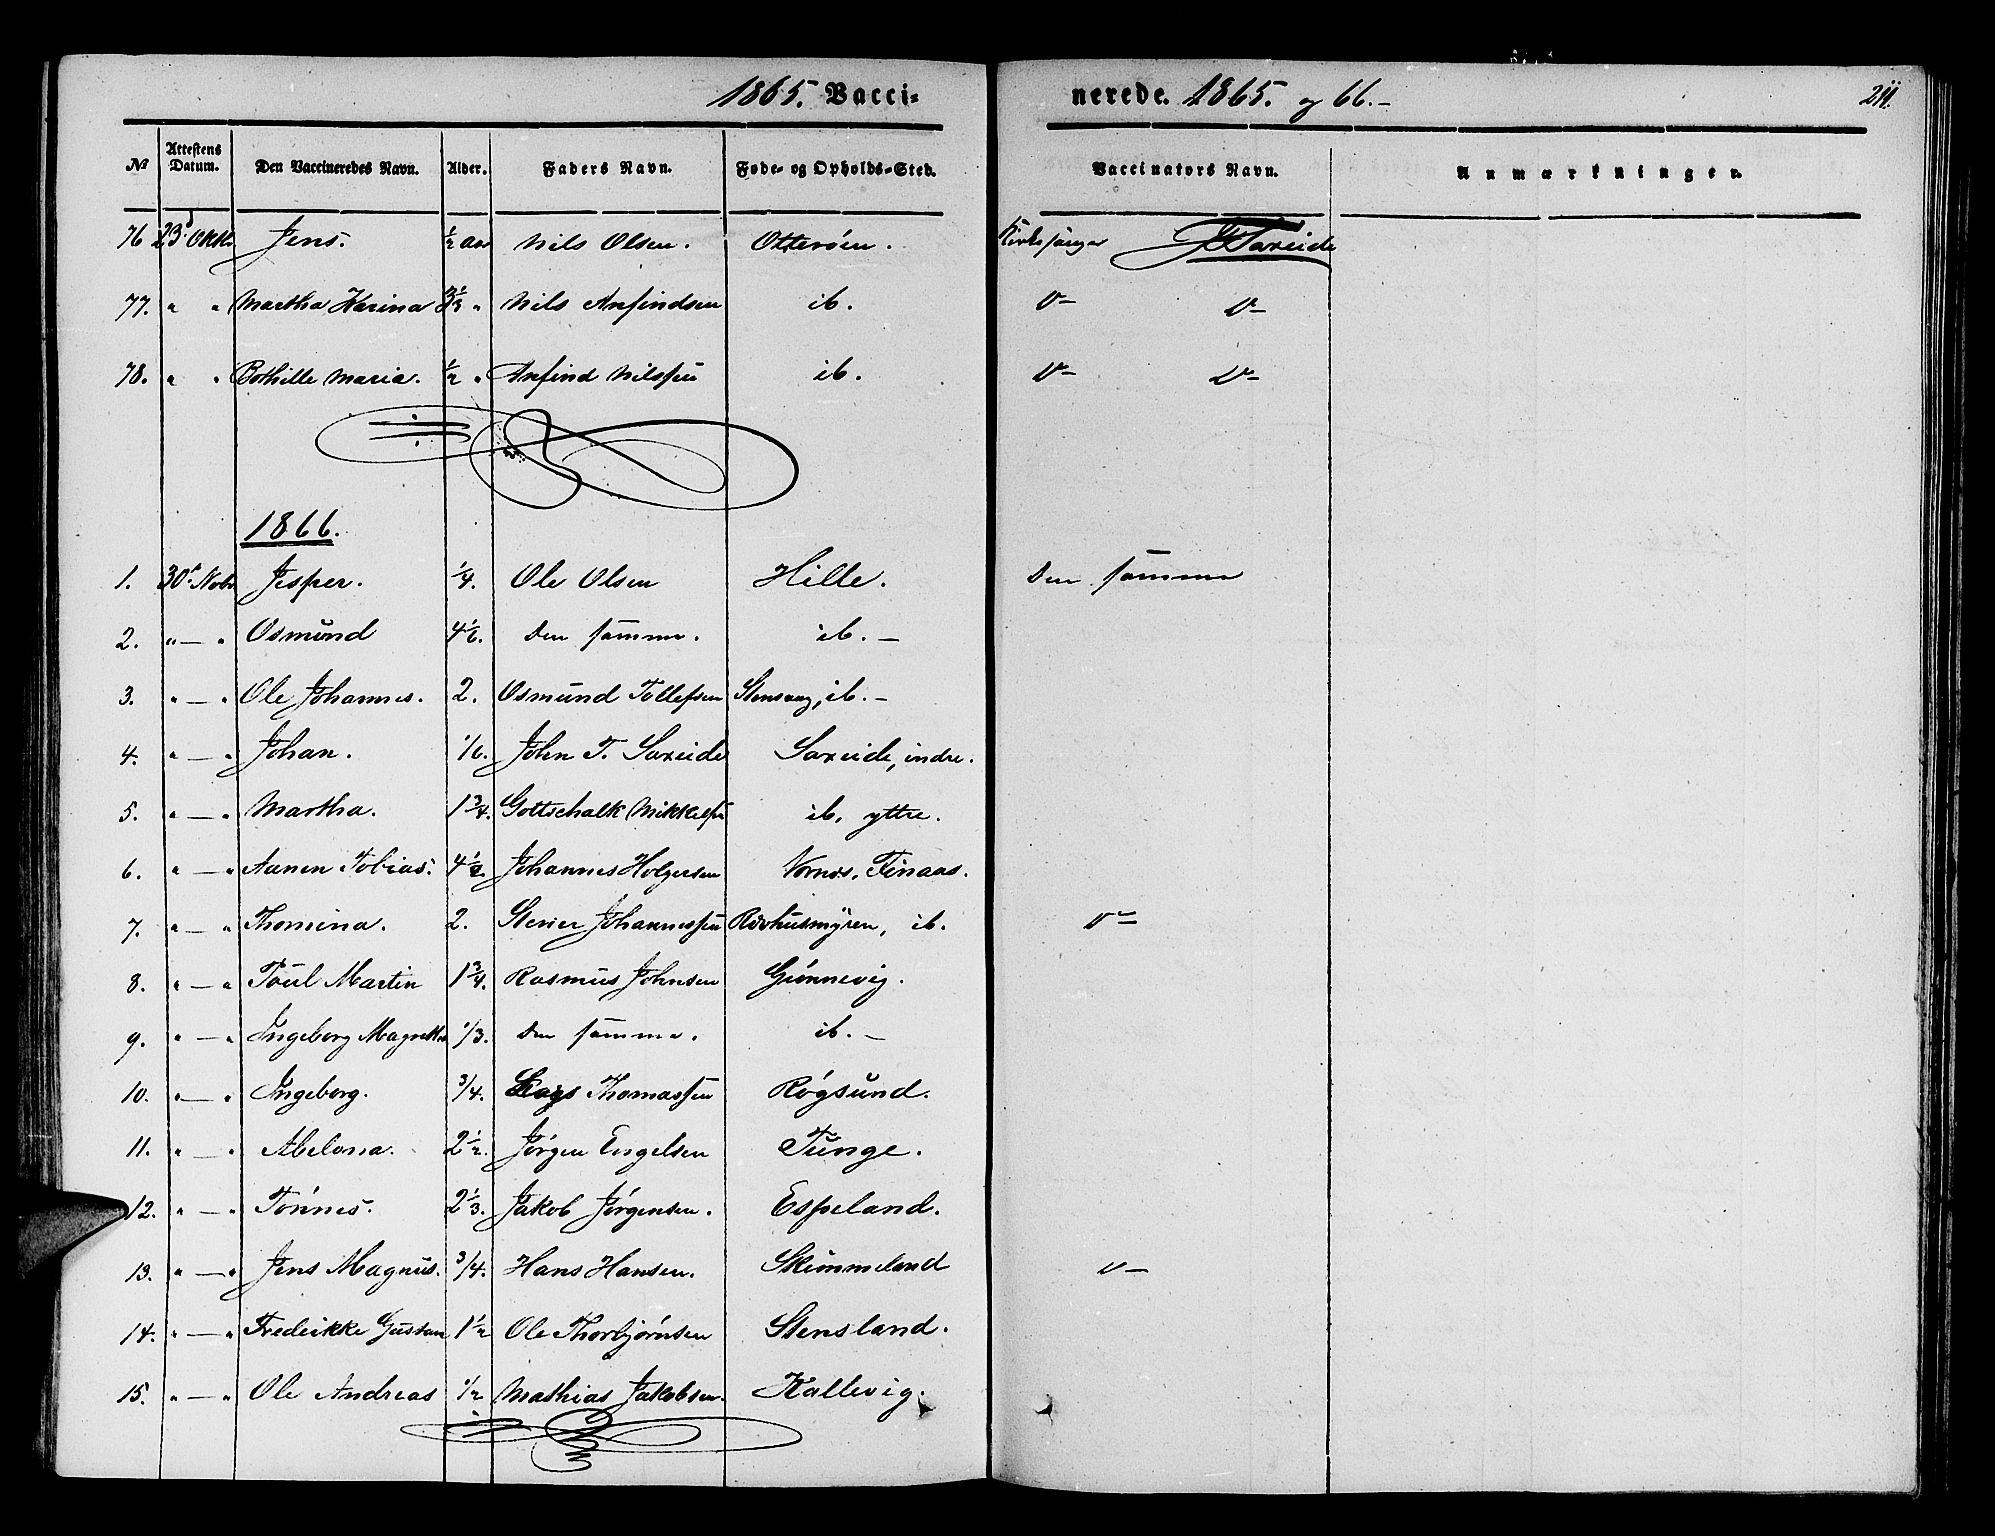 1865. Vacci-
nerede. 1865. og 66.-
211.
No Attestens Datum. Den Vaccineredes Navn. Alder. Faders Navn. Føde- og Opholds-Sted. Vaccinators Navn. Anmærkninger.
76 23d Oktr Jens. 1/2 aar Nils Olsen. Otterøen. Kirkesanger Saxeide
77. " " Martha Karina " Nils Anfindsen ib. D- D-
78. " " Bothille Maria. 1/2 " Anfind Nilssen ib. D- D-
1866.
1. 30te Nobr Jesper. 1/4. Ole Olsen Hille. Den samme
2. " — " Osmund 4 1/6. Den samme. ib. —
3. " — " Ole Johannes. 2. Osmund Tollefsen Stensvag, ib. —
4. " — " Johan. 1/6. John T. Saxeide Saxeide, indre.
5. " — " Martha. 1 3/4. Gottschalk Mikkelsen ib. yttre.
6. " — " Aanen Tobias. 4 1/2. Johannes Holgersen Vornes, Finaas.
7. " — " Thomina. 2. Johannessen ib. D-
8. " — " Poul Martin 1 3/4. Rasmus Johnsen Gunnevig.
9. " — " Ingeborg 1/3. Den samme. ib. —
10. " — " Ingeborg. 3/4. Lars Thomassen Røgsund.
11. " — " Abelona. 2 1/2. Jørgen Engelsen Tunge.
12. " — " Tønnes. 2 1/3. Jakob Jørgensen. Espeland.
13. " — " Jens Magnus. 3/4. Hans Hansen. Skimmeland D-
14. " — " Fredrikke 1 1/2 Ole Thorbjørnsen Stensland.
15. " — " Ole Andreas 1/2 Mathias Jakobsen. Kallevig.